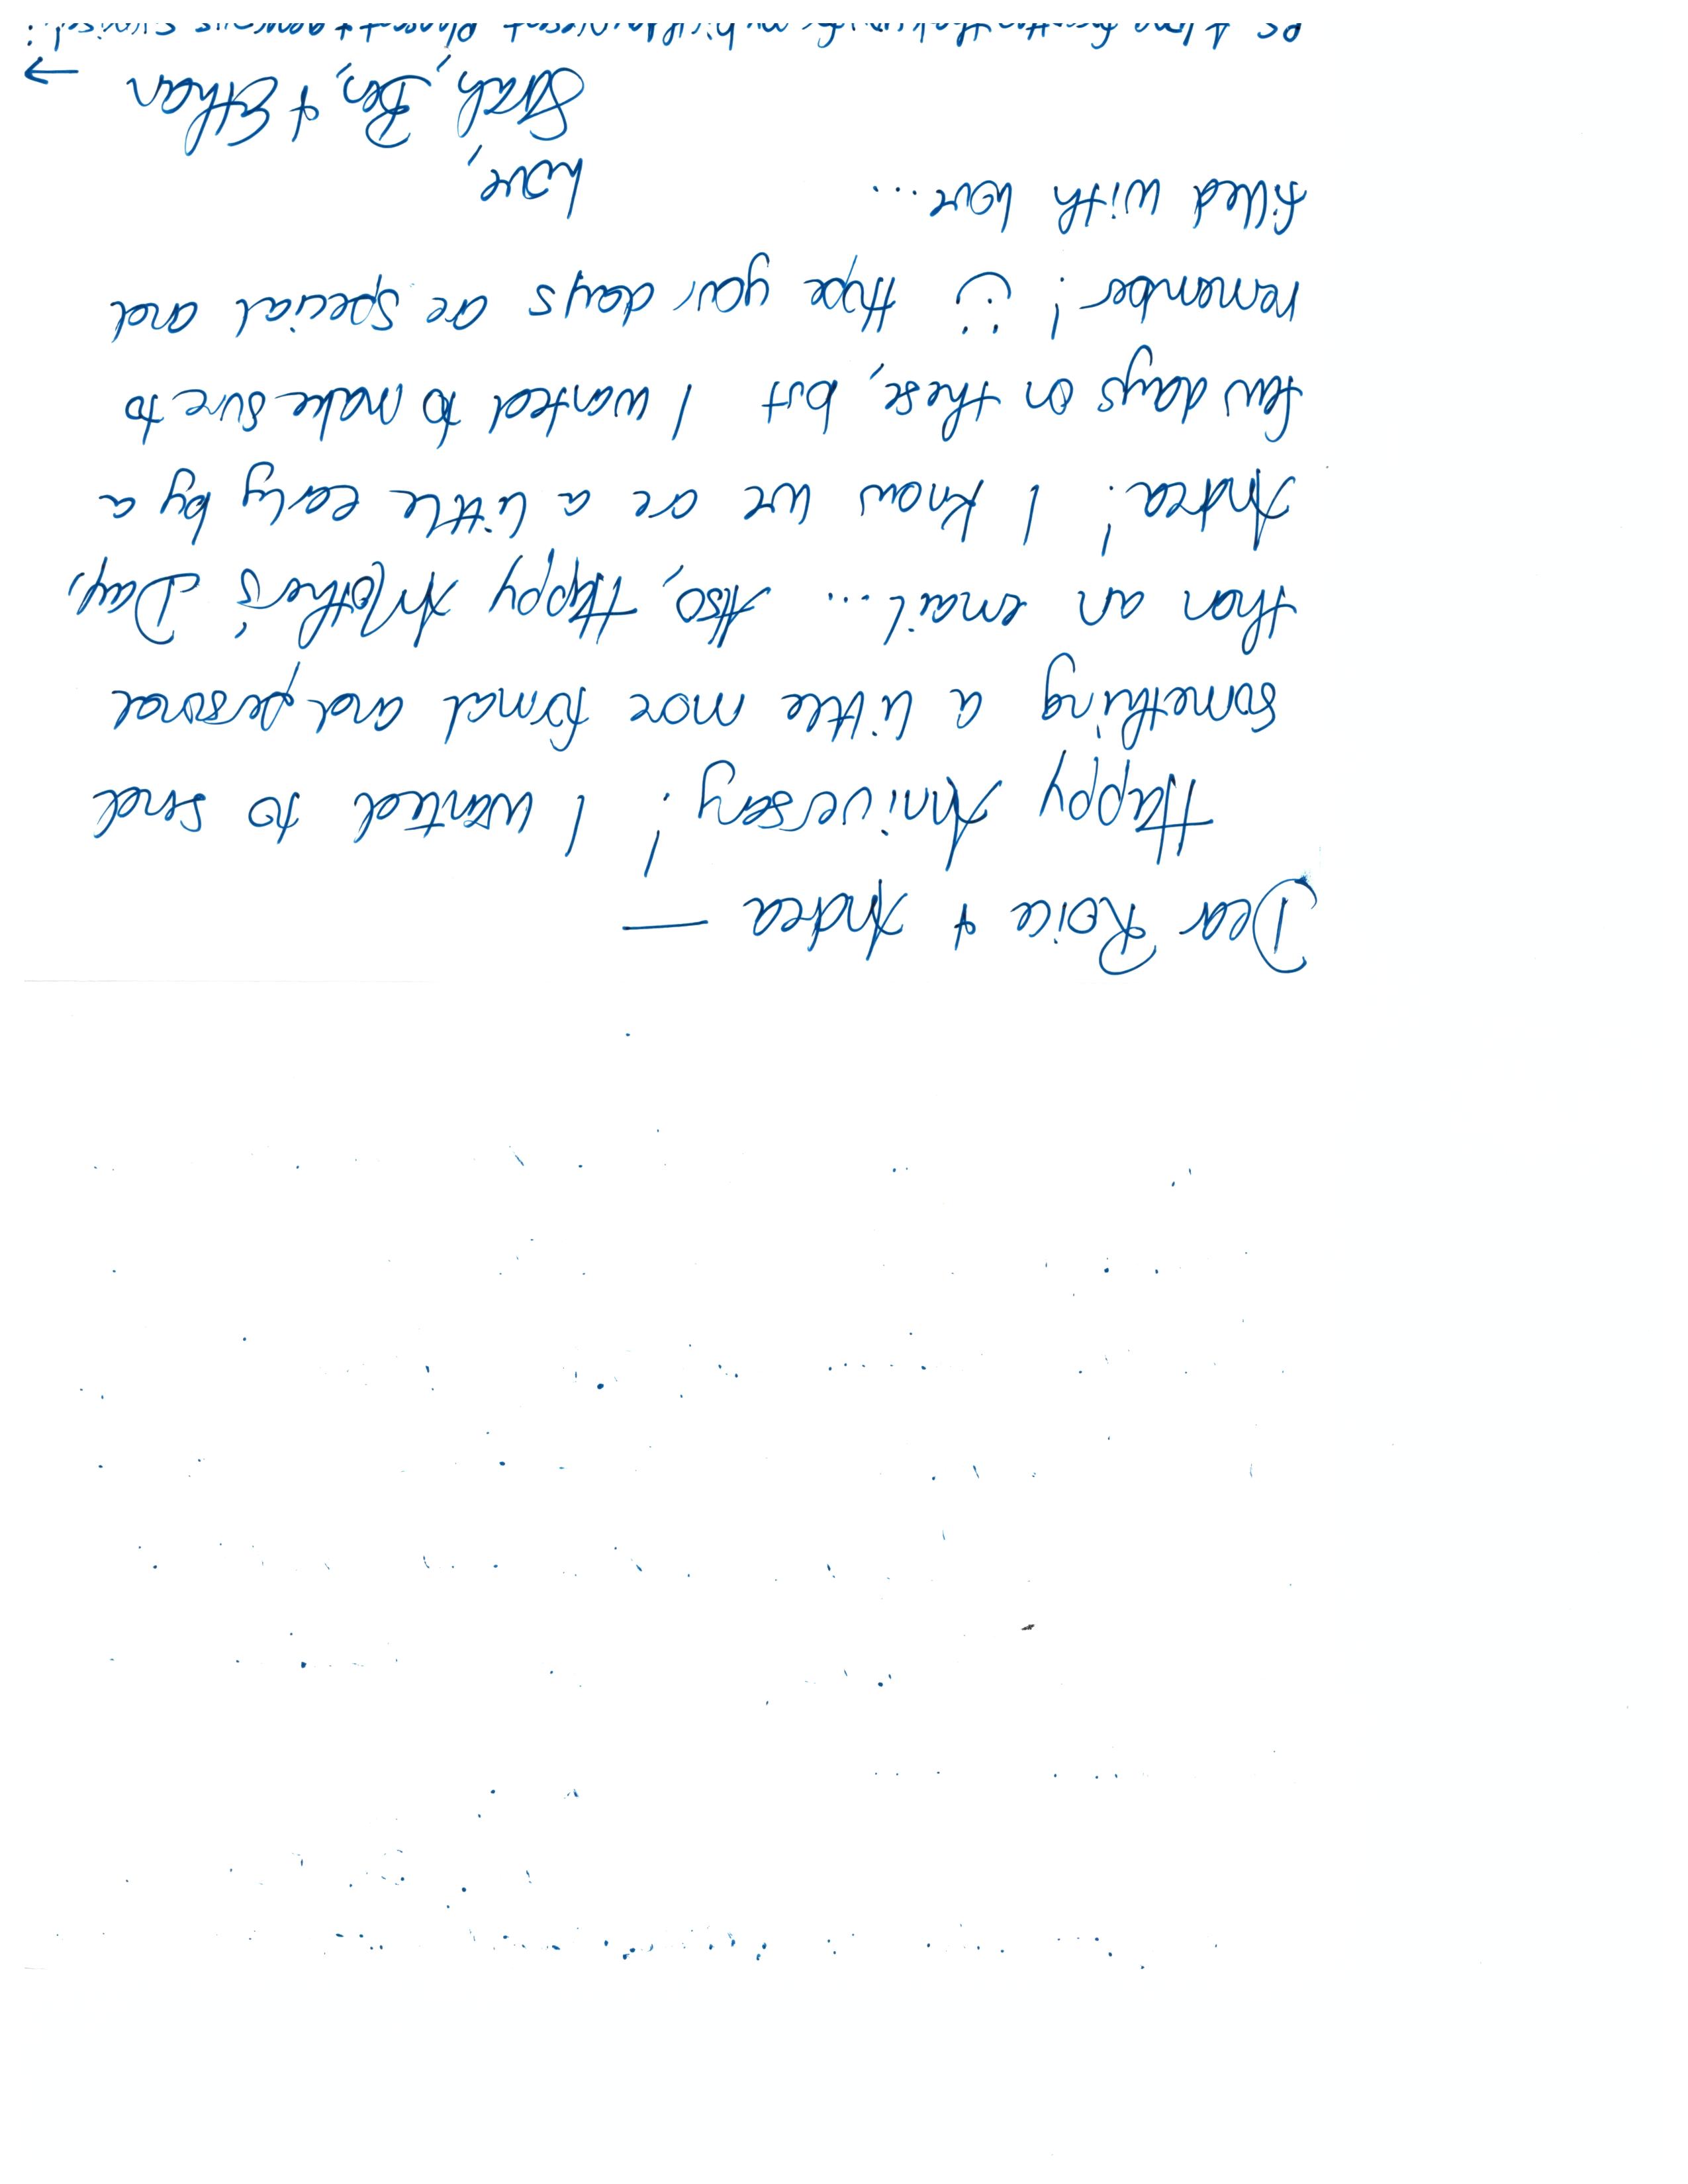 Dear Roice & Andrea —
Happy Aniversary! I wanted to send
something a little more formal and personal
than an email... Also, Happy Mother's Day,
Andrea! I know we are a little early by a
few days on these, but I wanted to make sure to
remember! :) Hope your days are special and
filled with love...
Love,
Sarah, Ben, & Ethan
→
PS I love for the thank you for my birthday present pleasant & generous surprise!: